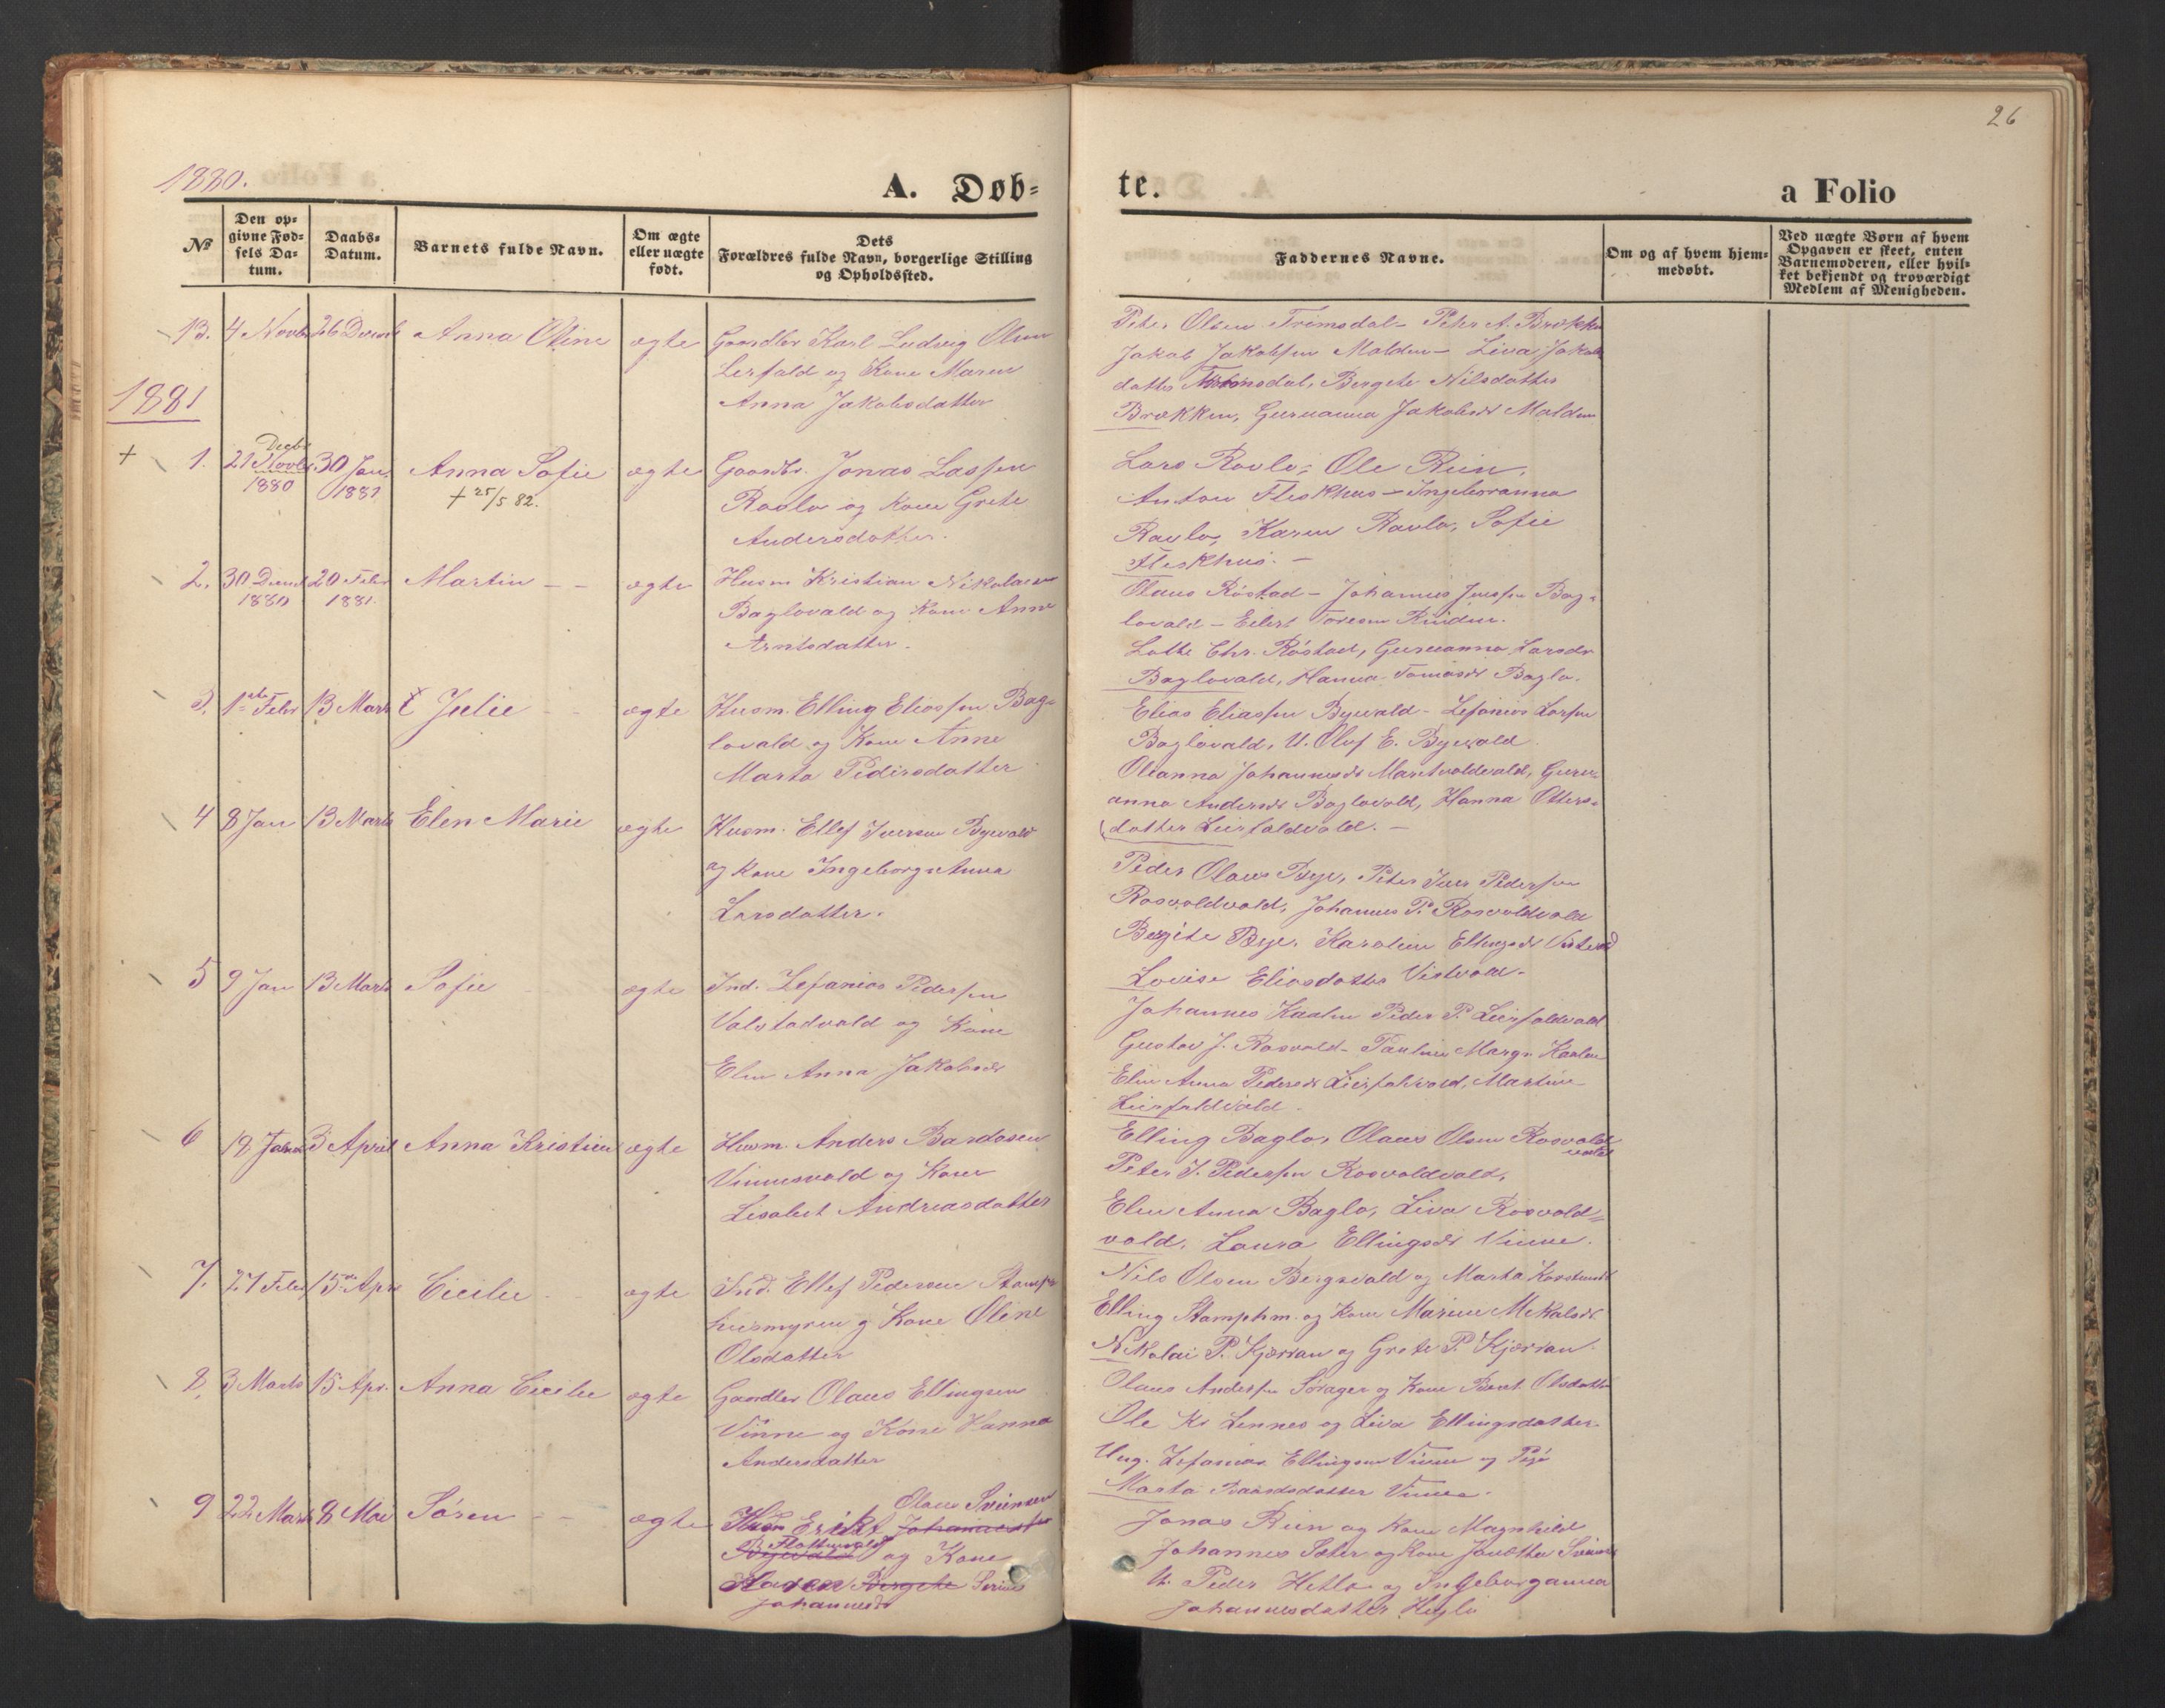 26
1880.
A. Døb=
te.
a Folio
№
Den op=
givne Fød=
sels Da=
tum.
Daabs=
Datum.
Barnets fulde Navn.
Om ægte
eller uægte
født.
Dets
Forældres fulde Navn, borgerlige Stilling
og Opholdssted.
Faddernes Navne.
Om og af hvem hjem=
medøbt.
Ved uægte Børn af hvem
Opgaven er skeet, enten
Barnemoderen, eller hvil=
ket bekjendt og troværdigt
Medlem af Menigheden.
13. 4 Novbr 26 Decemb Anna Oline ægte Gaardbr Karl Ludvig Olsen
Lerfald og Kone Maren
Anna Jakobsdatter
Peter Olsen Tromsdal - Petr A. Brækken
Jakob Jakobsen Molden - Liva Jakobs
datter Tromsdal, Bergete Nilsdatter
Brækken, Guruanna Jakobsdr Molden
1881
+ 1. 21 Decbr 30 Jan Anna Sofie ægte Gaardbr. Jonas Lassen
1880 1881 + 25/5 82. Ravlo og Kone Grete
Andersdatter.
Lars Ravlo, Ole Rein,
Anton Fleskhus - Ingeboranna
Ravlo, Karen Ravlo, Sofie
Fleskhus. -
2. 30 Decemb 20 Febr Martin - - ægte Husm Kristian Nikolaisen
1880 1881. Baglovald og Kone Anne
Arntsdatter.
Olaus Røstad - Johannes Jensen Bag=
lovald - Eilert Toresen Rinden.
Lotte Chr. Røstad, Guruanna Larsdr
Baglovald, Hanna Tomasdr Baglo.
3. 1ste Febr 13 Marts Julie ægte Husm. Elling Eliassen Bag=
lovald og Kone Anne
Marta Pedersdatter
Elias Eliassen Byevald - Zefanias Larsen
Baglovald, U. Oluf E. Byevald
Oleanna Johannesdr Maritvoldvald, Guru=
anna Andersdr Baglovald, Hanna Otters=
datter Leirfaldvald. -
4 8 Jan 13 Marts Elen Marie ægte Husm. Ellef Iversen Byevald
og Kone Ingeborganna
Larsdatter.
Peder Olaus Bye, Peter Iver Pedersen
Rosvoldvald, Johannes P. Rosvoldvald
Bergite Bye. Karoline Ellingsdr Vistvald
Lovise Eliasdatter Vistvald.
5 9 Jan 13 Marts Sofie ægte Ind. Zefanias Pedersen
Valstadvald og Kone
Elen Anna Jakobsdr
Johannes Kaalen Peder P. Leirfaldvald
Gustav J. Rosvold - Pauline Margr. Kaalen
Elen Anna Pedersdr Leirfaldvald, Martine
Leirfaldvald.
6 12 Januar 3 April Anna Kristine ægte Husm. Anders Bardosen
Vinnesvald og Kone
Lisabet Andreasdatter
Elling Baglo, Olaus Olsen Rosvold
vald
Peter J. Pedersen Rosvoldvald,
Elen Anna Baglo, Liva Rosvold=
vald, Laura Ellingsdr Vinne.
7. 27 Febr 15de Apr Cicilie ægte Ind. Ellef Pedersen Stamp
husmyren og Kone Oline
Olsdatter
Nils Olsen Bergsvald og Marta
Elling Stamphm. og Kone Maren Mikalsdr
Nikolai P. Kjærran og Grete P. Kjærran.
8. 3 Marts 15 Apr. Anna Cecilie ægte Gaardbr Olaus Ellingsen
Vinne og Kone Hanna
Andersdatter
Olaus Andersen Sørager og Kone Berit Olsdatter
Ole Kr Lennes og Liva Ellingsdatter
Ung. Zefanias Ellingsen Vinne og Pige
Marta Baardsdatter Vinne.
9 22 Marts 8 Mai Søren - - ægte Husm Erikt Johannessen Olaus Sveinsen
Byevald Flottenvald og Kone
Karen Bergete Serine
Johannesdr
Jonas Rein og Kone Magnhild
Johannes Sæter og Kone
U. Peder Hello og Ingeborganna
Johannesdatter